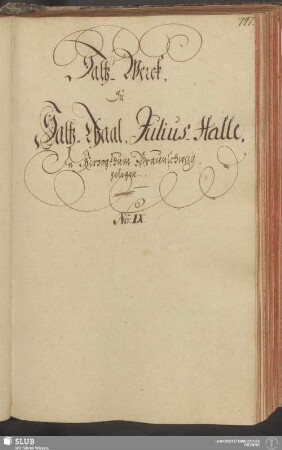 Saltz-Werck.
zu
Saltz-Thaal. Julius-Halle,
im Herzogthum Braunschweig
gelegen.
No: IX.
SLUB
Wir führen Wissen.